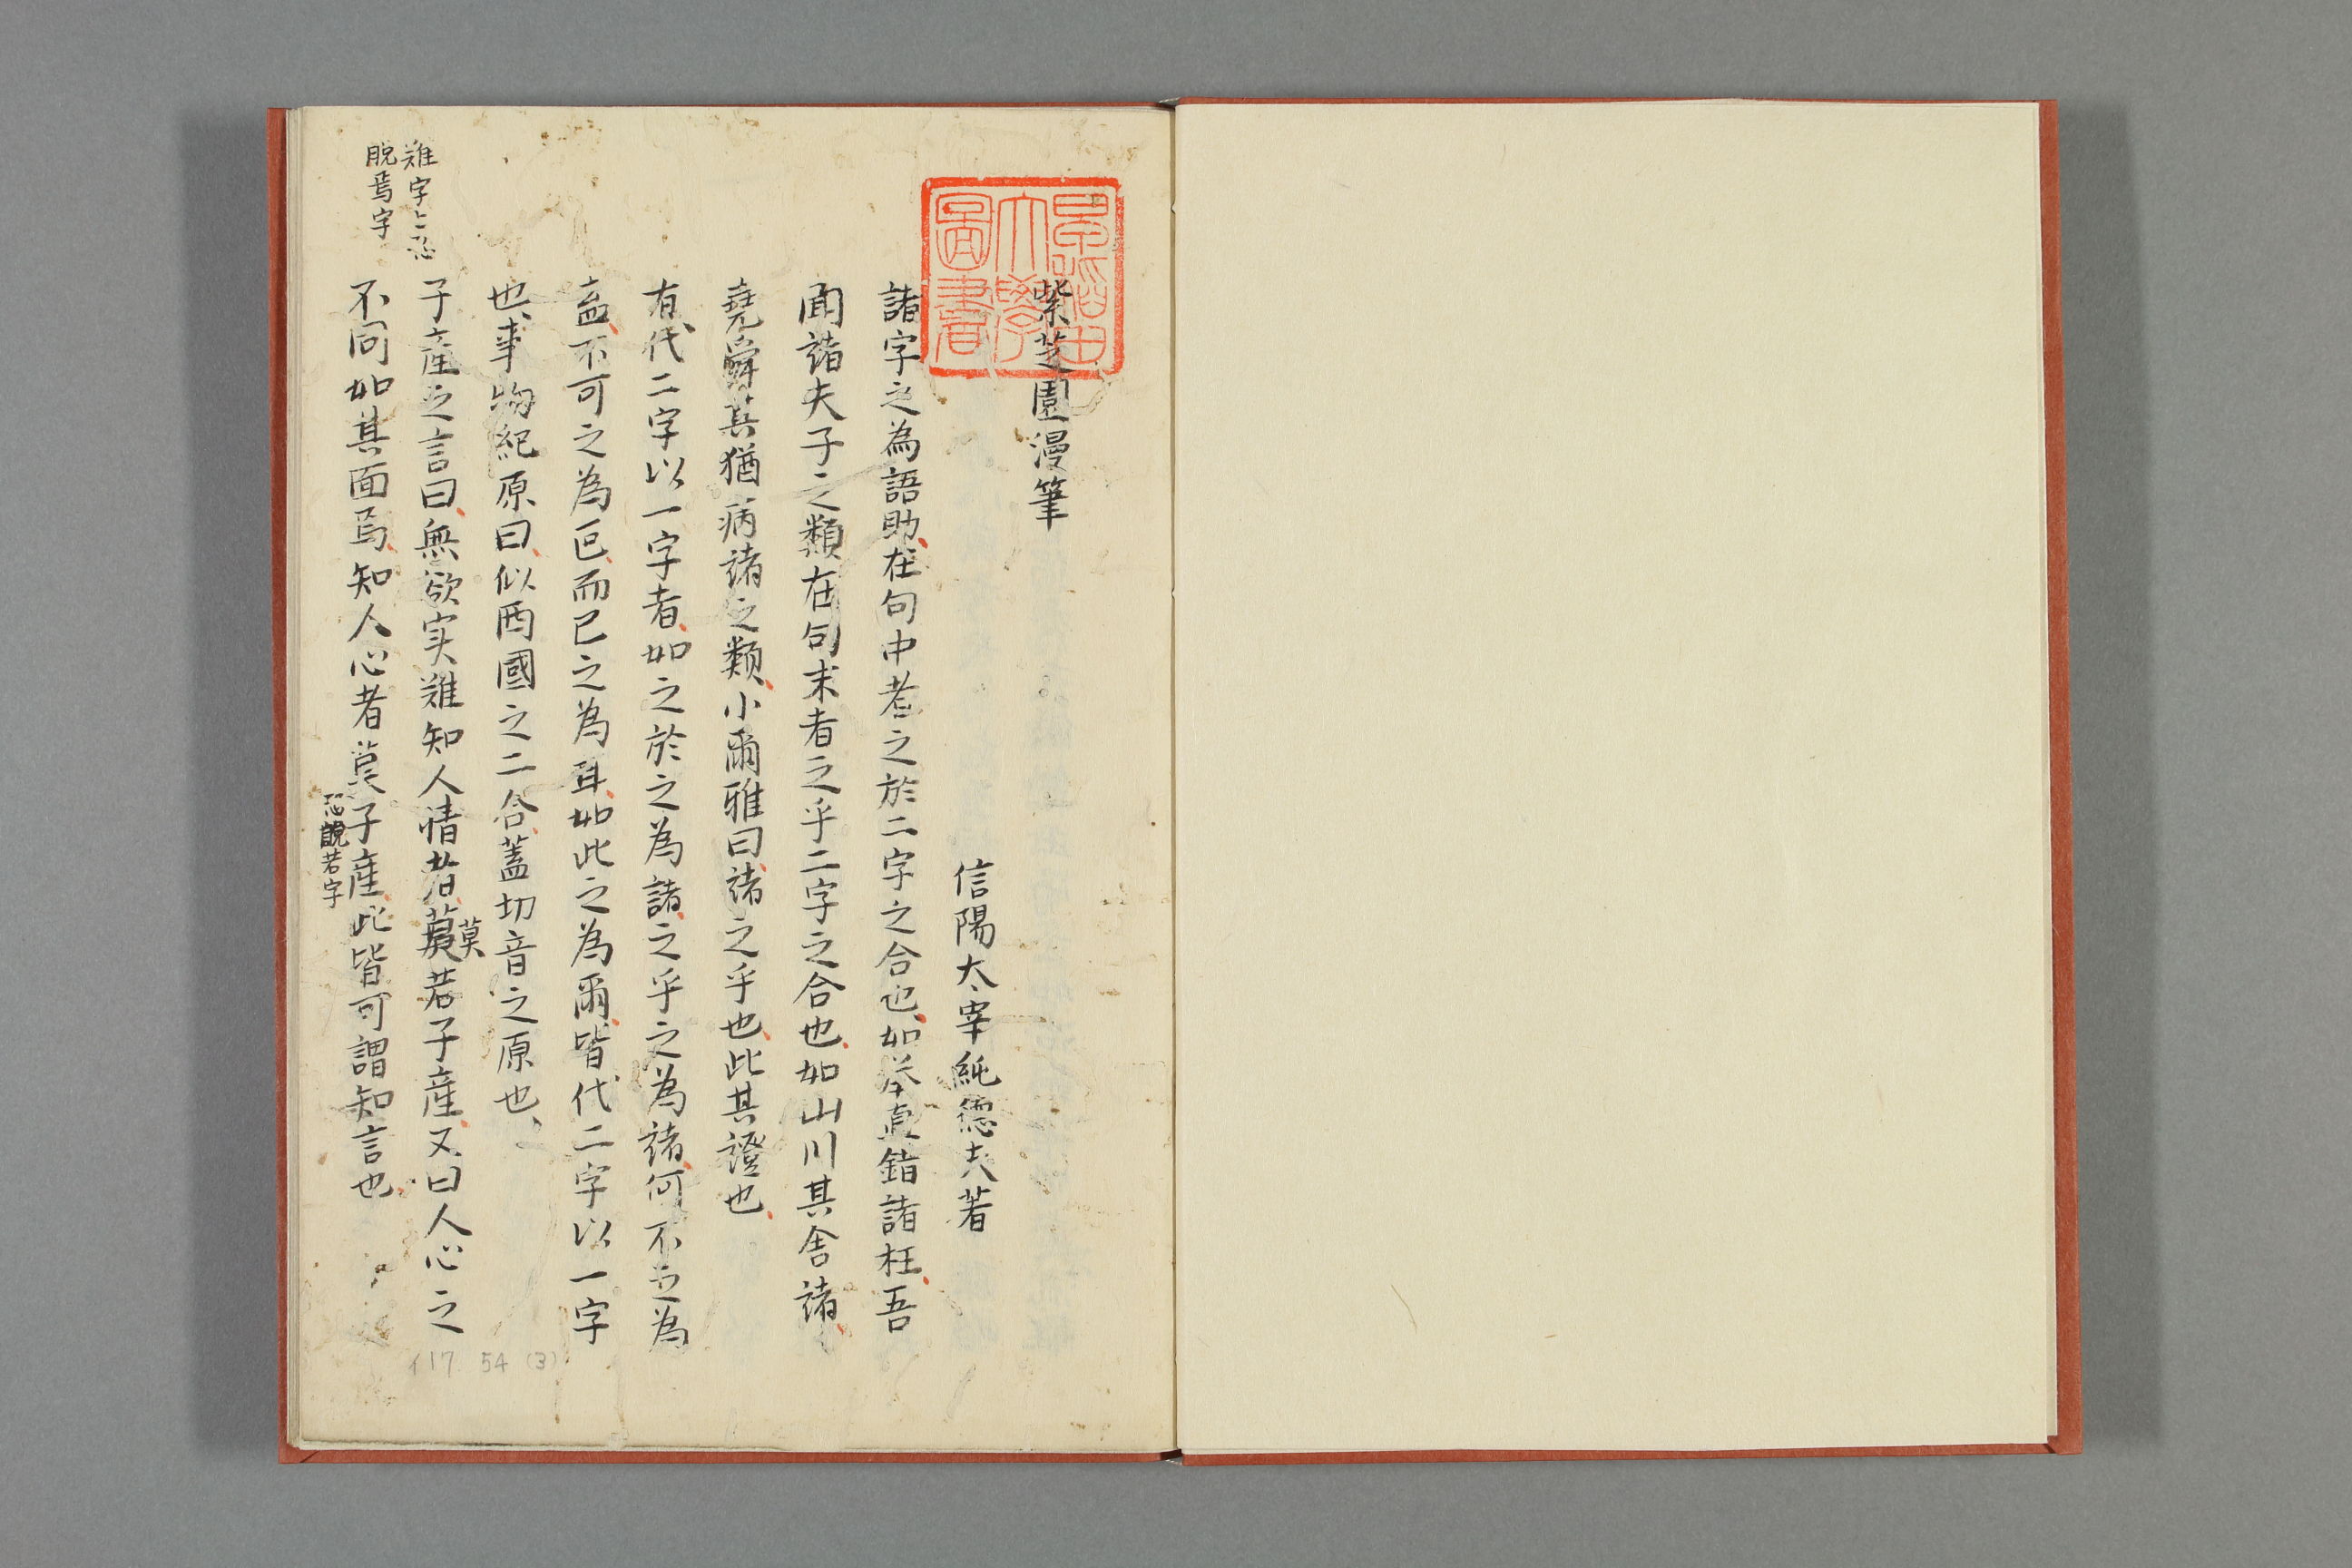 早稲田
大學
圖書
紫芝園漫筆
信陽太宰純德夫著
諸字之為語助、在句中者之於二字之合也、如举直錯諸枉、吾
聞諸夫子之類在句末者之乎二字之合也、如山川其舎諸、
堯舜其猶病諸之類、小爾雅曰、諸之乎也、此其證也、
有代二字以一字者、如之於之為諸、之乎之為諸、何不之為
盍、不可之為叵、而已之為耳、如此之為爾、皆代二字以一字
也、事物紀原曰、似西國之二合、蓋切音之原也、
子產之言曰、無欲実難知人情者、莫若子產、又曰人心之
莫
不同如其面焉、知人心者莫子產、此皆可謂知言也、
恐脱若字
难字上恐
脱焉字
イ17 54 (3)